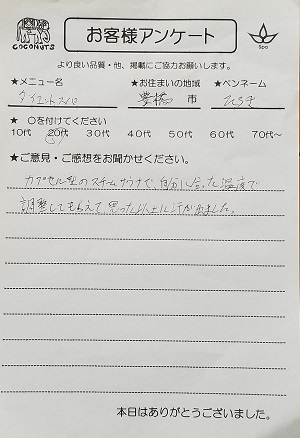 COCONUTS
お客様アンケート
Spa
より良い品質・他、掲載にご協力お願いします。
★メニュー名 ★お住まいの地域 ★ペンネーム
ダイエットスパ 豊橋 市
★ ○を付けてください
10代 20代 30代 40代 50代 60代 70代~
★ご意見・ご感想をお聞かせください。
カプセル型のスチームサウナで、自分に合った温度で
調整してもらえて、思った以上に汗が出ました。
本日はありがとうございました。